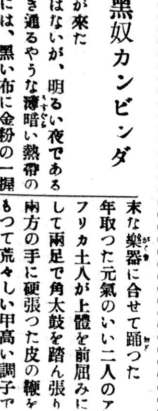 黑奴カンビンダ
が來た
はないが、明るい夜である
き通るやうな薄暗い熱帶の
には、黑い布に金粉の一握
末な樂器に合せて踊つた
年取つた元氣のいい二人のア
フリカ土人が上體を前屈みに
して兩足で角太鼓を踏ん張り
兩方の手に硬張つた皮の鞭を
もつて荒々しい甲高い調子で